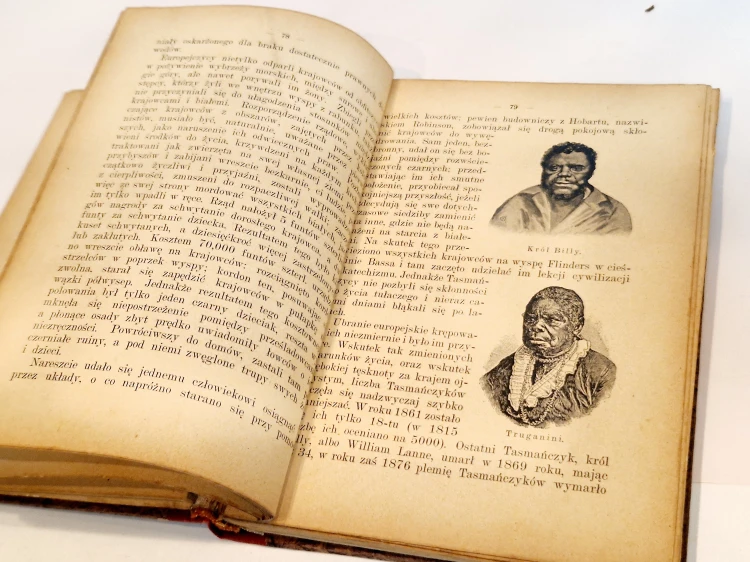 — 78 —
miały oskarżonego dla braku dostatecznie prawnych
wodów.
Europejczycy nietylko odparli krajowców od
w pożywienie wybrzeży morskich, między
gie góry, ale nawet porywali im żony. Zbiegli
stępcy, którzy żyli we wnętrzu wyspy z
nie przyczyniali się do złagodzenia stosunków
krajowcami i białemi. Rozporządzenie rządowe,
czające krajowców z obszarów, zajętych przez
nistów, musiało być, naturalnie, uważane przez
szych, jako naruszenie ich odwiecznych praw.
wieni środków do życia, krzywdzeni na każdym
traktowani jak zwierzęta na swej własnej ziemi
przybyszów i zabijani wreszcie bezkarnie, ci
czątkowo życzliwi i przyjaźni, zostali wyprowadzeni
z cierpliwości, zmuszeni do rozpaczliwej walki,
więc ze swej strony mordować wszystkich białych,
im tylko wpadli w ręce. Rząd nałożył 5 funtów
gów nagrody za schwytanie dorosłego krajowca, a
funty za schwytanie dziecka. Rezultatem tego
kuset schwytanych, a dziesięćkroć więcej
lub zakłutych. Kosztem 70,000 funtów szterl. urządzono
no wreszcie obławę na krajowców: rozciągnięto
strzelców w poprzek wyspy; kordon ten, posuwając
zwolna, starał się zapędzić krajowców w pułapkę,
wązki półwysep. Jednakże rezultatem tego kosztownego
polowania był tylko jeden czarny dzieciak, reszta
mknęła się niepostrzeżenie pomiędzy prześladowcami,
a płonące osady zbyt prędko uwiadomiły łowców o
niezręczności. Powróciwszy do domów, zastali tam
czerniałe ruiny, a pod niemi zwęglone trupy swych
i dzieci.
Nareszcie udało się jednemu człowiekowi osiągnąć
przez układy, o co napróżno starano się przy
— 79 —
wielkich kosztów; pewien budowniczy z Hobartu, nazwi-
skiem Robinson, zobowiązał się drogą pokojową skło-
nić krajowców do wywę-
drowania. Sam jeden, bez-
bronny, udał on się bez bo-
jaźni pomiędzy rozwście-
czonych czarnych; przed-
stawiając im ich smutne
położenie, przyobiecał spo-
kojniejszą przyszłość, jeżeli
zdecydują się swe dotych-
czasowe siedziby zamienić
na inne, gdzie nie będą na-
rażeni na starcia z białe-
mi. Na skutek tego prze-
wieziono wszystkich krajowców na wyspę Flinders w cieś-
ninie Bassa i tam zaczęto udzielać im lekcyj cywilizacji
katechizmu. Jednakże Tasmań-
czycy nie pozbyli się skłonności
życia tułaczego i nieraz ca-
łemi dniami błąkali się po la-
Król Billy.
Ubranie europejskie krępowa-
ło ich niezmiernie i było im przy-
Wskutek tak zmienionych
warunków życia, oraz wskutek
głębokiej tęsknoty za krajem oj-
czystym, liczba Tasmańczyków
zaczęła się nadzwyczaj szybko
zmniejszać. W roku 1861 zostało
ich tylko 18-tu (w 1815
liczbę ich oceniano na 5000). Ostatni Tasmańczyk, król
Billy, albo William Lanne, umarł w 1869 roku, mając
34, w roku zaś 1876 plemię Tasmańczyków wymarło
Truganini.